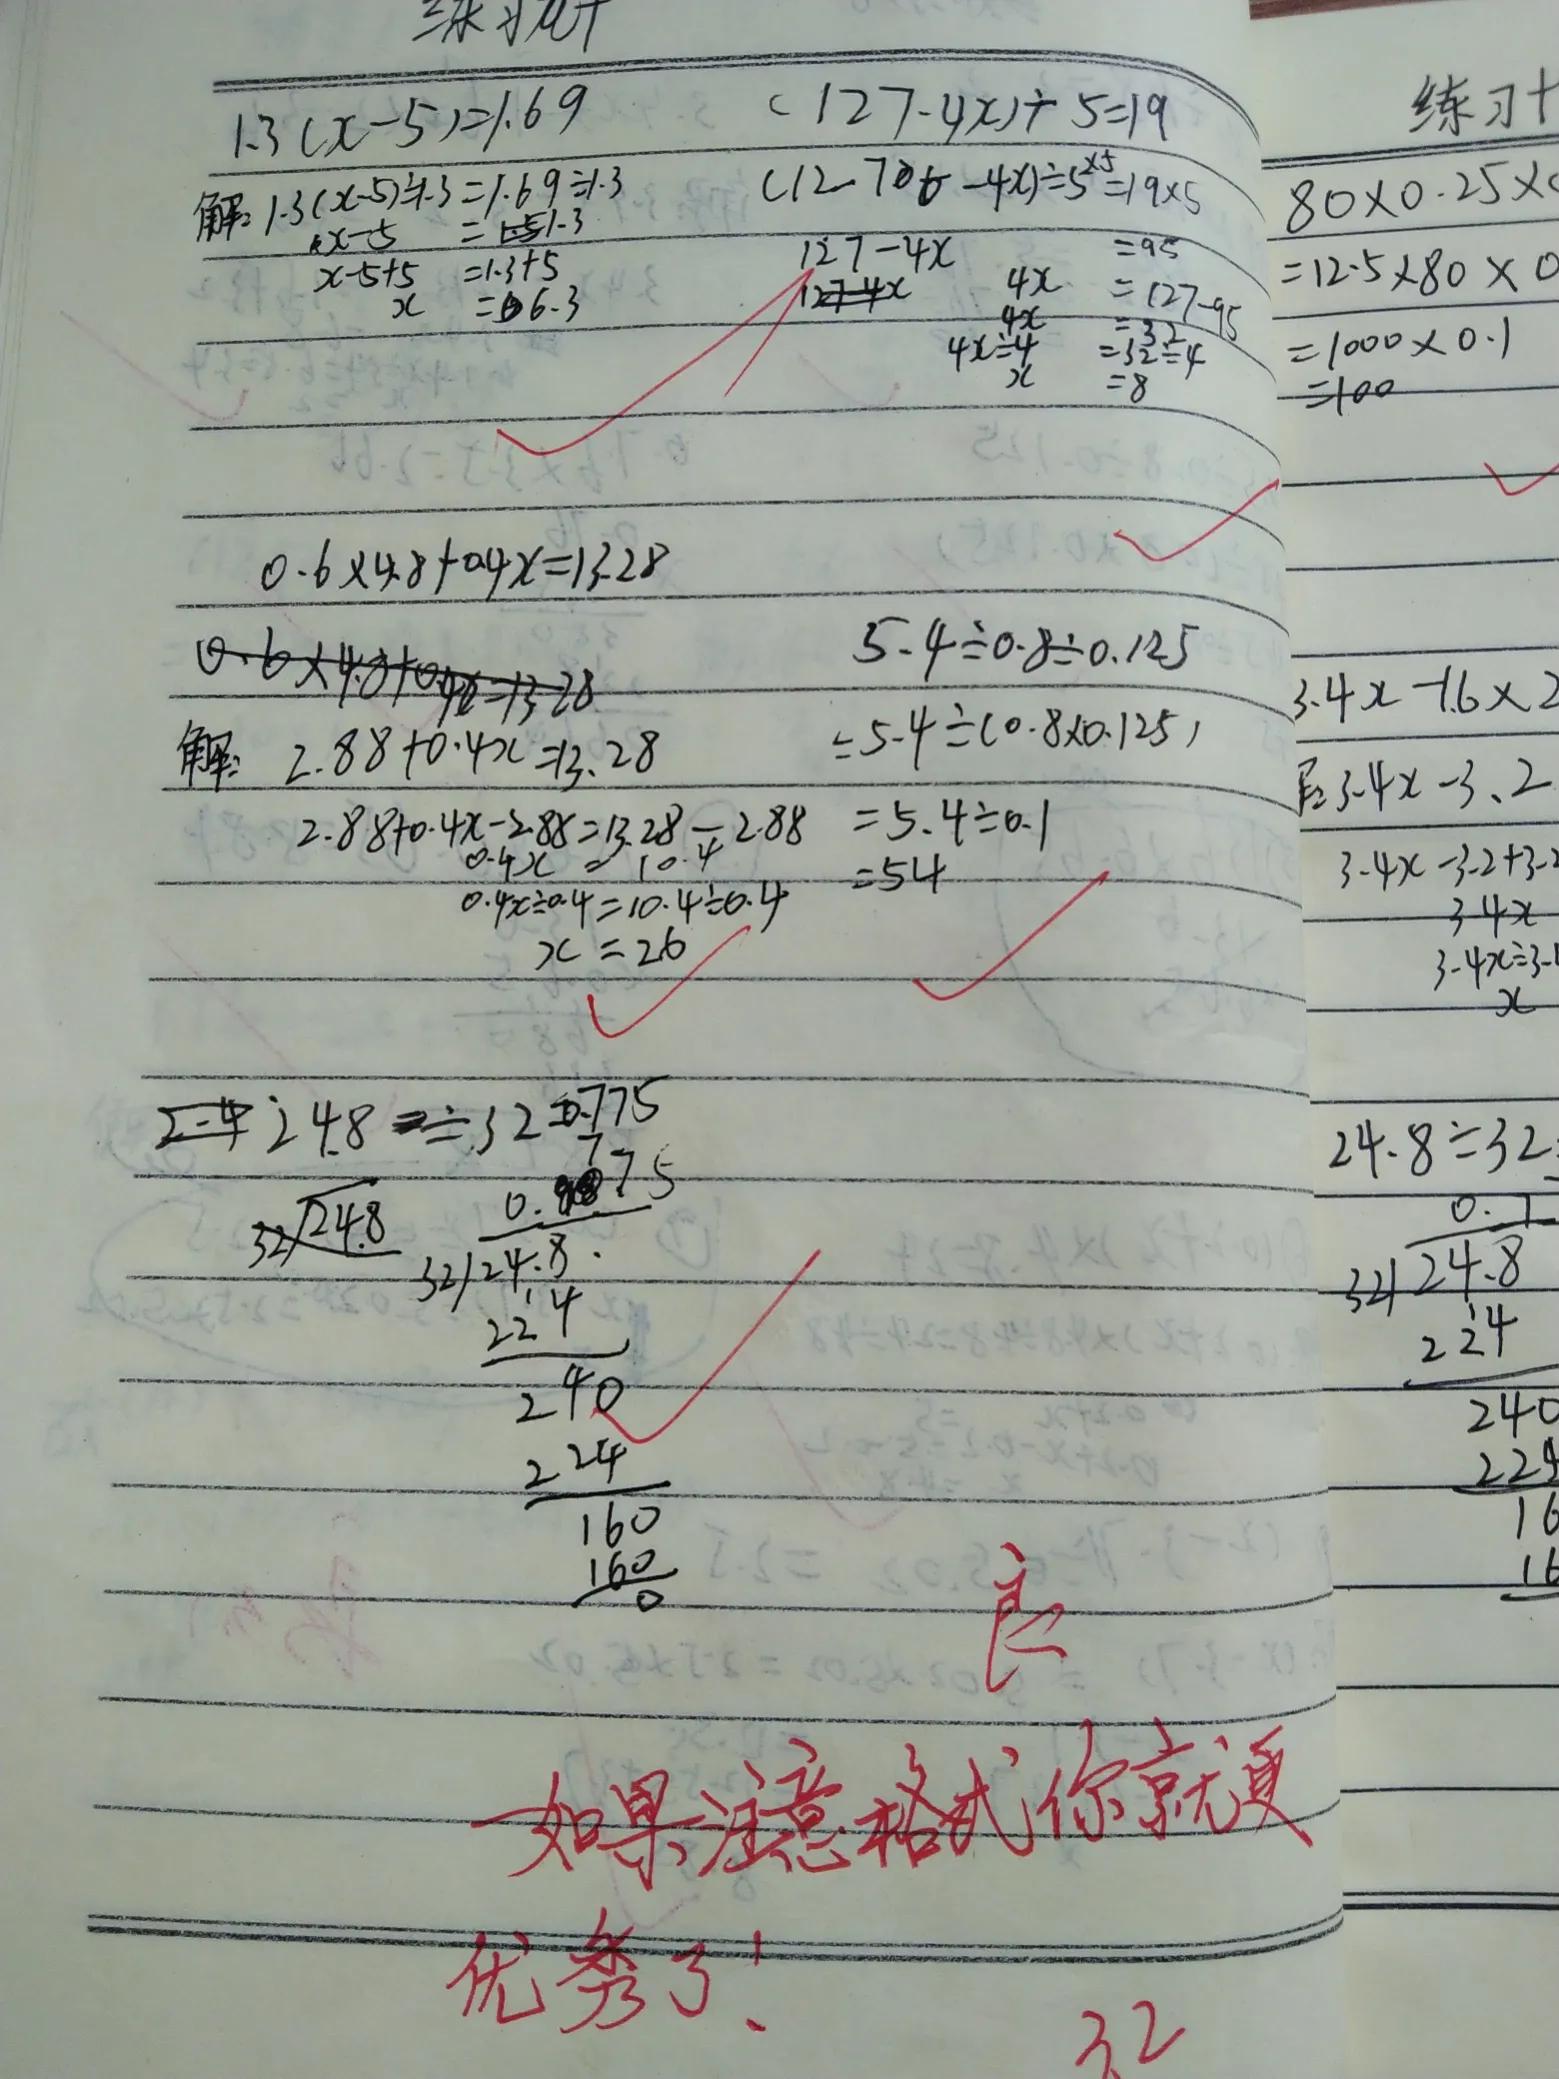 练习
1.3(x-5)=1.69
解:1.3(x-5)÷1.3=1.69÷1.3
x-5 =1.3
x-5+5 =1.3+5
x =6.3
(127-4x)÷5=19
-4x)÷5×5=19×5
127-4x =95
127-4x
4x =127-95
4x =32
4x÷4 =32÷4
x =8
0.6×4.8+0.4x=13.28
0.6×4.8+0.4x=13.28
解: 2.88+0.4x=13.28
2.88+0.4x-2.88=13.28-2.88
0.4x = 10.4
0.4x÷0.4=10.4÷0.4
x =26
5.4÷0.8÷0.125
=5.4÷(0.8×0.125)
=5.4÷0.1
=54
2.4 24.8 ÷32=0.775
32)24.8
0.775
32)24.8
224
240
224
160
160
0
良
如果注意格式你就更
优秀了!
3.2
练习十
80×0.25×
=12.5×80×0
=1000×0.1
=100
3.4x-1.6×2
3.4x-3.2
3.4x-3.2+3.2
3.4x
3.4x÷3.
x
24.8÷32
0.7
32)24.8
224
240
224
16
16